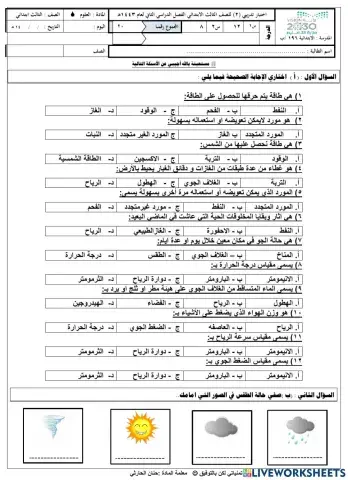 اختبار تدريبي (٢) للصف الثالث الابتدائي الفصل الدراسي الثاني لعام ١٤٤٣هـ
المادة : العلوم
الصف : الثالث ابتدائي
اليوم :
التاريخ :
المدرسة : الابتدائية ١٩٦
اسم الطالبة :
الصف
مستعينة بالله أجيبي عن الأسئلة التالية
السؤال الأول : أ : اختاري الإجابة الصحيحة فيما يلي :
١) هي طاقة يتم حرقها للحصول على الطاقة:
أ. النفط ب - الفحم ج - الوقود د- الغاز
٢) هو مورد لايمكن تعويضه او استعماله بسهولة:
أ. المورد المتجدد ب الغاز ج المورد الغير متجدد د- النبات
٣) هي طاقة نحصل عليها من الشمس:
أ. الوقود ب - التربة ج - الاكسجين د- الطاقة الشمسية
٤) هو غطاء من عدة طبقات من الغازات و دقائق الغبار يحيط بالأرض:
أ. التربة ب - الغلاف الجوي ج - الهطول د- الرياح
٥) المورد الذي يمكن تعويضه أو استعماله مرة أخرى بسهولة يسمى:
أ. المورد المتجدد ب - النفط ج - مورد غيرمتجدد د- الفحم
٦) هي اثار وبقايا المخلوقات الحية التي عاشت في الماضي البعيد:
أ. النفط ب - الاحفورة ج - الغازالطبيعي د- الرياح
٧) هي حالة الجو في مكان معين خلال يوم او عدة ايام:
أ. المناخ ب - الغلاف الجوي ج - الطقس د- درجة الحرارة
٨) يسمى مقياس درجة الحرارة بـ:
أ. الانيمومتر ب - البارومتر ج - دوارة الرياح د- الثرمومتر
٩) يسمى الماء المتساقط من الغلاف الجوي على هيئة مطر او ثلج أو برد بـ:
أ. الهطول ب - الرياح ج - الفضاء د- الهيدروجين
١٠) هو وزن الهواء الذي يضغط على الأشياء بـ:
أ. الرياح ب - العاصفه ج - الضغط الجوي د- درجة الحرارة
١١) يسمى مقياس سرعة الرياح بـ:
أ. الانيمومتر ب - البارومتر ج - دوارة الرياح د- الثرمومتر
١٢) يسمى مقياس الضغط الجوي بـ:
أ. الانيمومتر ب - البارومتر ج - دوارة الرياح د- الثرمومتر
السؤال الثاني : ب :صفي حالة الطقس في الصور التي امامك.
تمنياتي لكن بالتوفيق
معلمة المادة :حنان الحارثي
LIVEWORKSHEETS